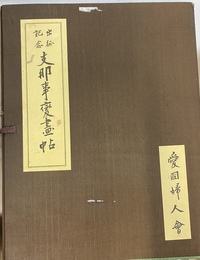 出征
記念
支那事變畫帖
愛国婦人會